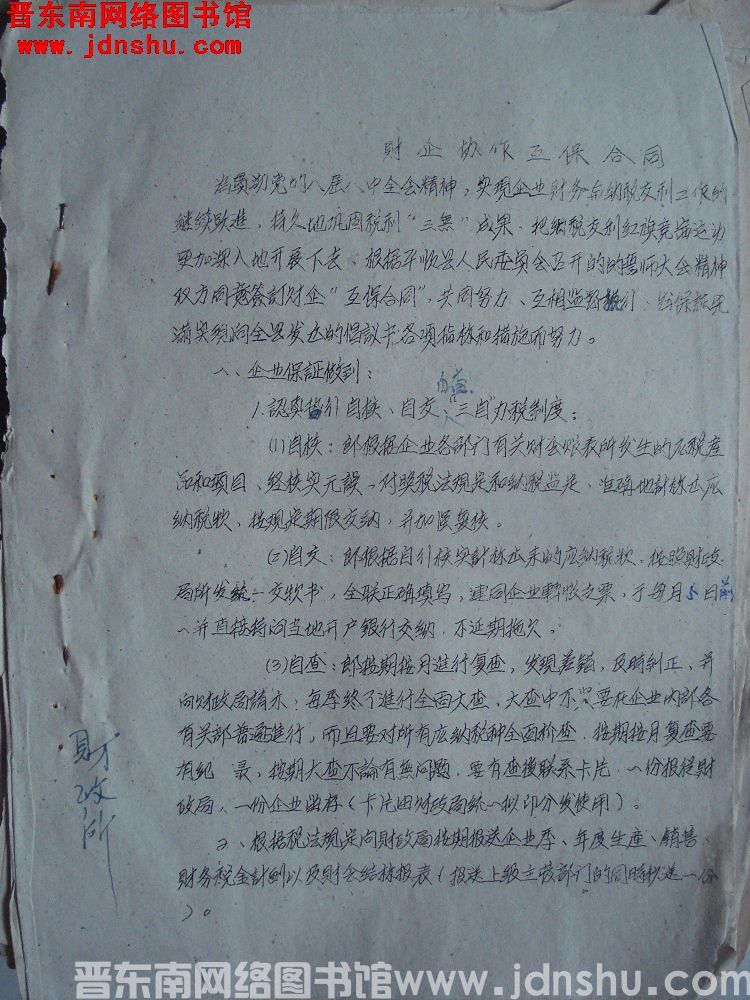 晋东南网络图书馆
www.jdnshu.com
財企协作互保合同
为貫彻党的八届八中全会精神，实現企业財务与納税交利工作的
継续跃進，持久地巩固税利“三無”成果，把納税交利红旗竞赛运动
更加深入地开展下去、根据平順县人民委員会召开的的誓师大会精神
双方同意簽訂財企“互保合同”，共同努力、互相监督执行、
滿实現向全县发出的倡議书各项指标和措施而努力。
一、企业保証做到：
1.認真执行自核、自交、自查“三自”办税制度：
(1)自核：即根据企业各部门有关財会账表所发生的应税産
品和項目、経核实无誤、对照税法規定和納税鉴定、准确地計标出应
納税款，按規定期限交納，并加强复核。
(2)自交：即根据自行核实計标出来的应納税款，按照財政
局所发統一交款书，全联正确填写，連同企业轉账支票，于每月5日前
一并直接持向当地开户银行交納，不延期拖欠。
(3)自查：即按期按月進行复查，发現差錯，及時糾正、并
向財政局請示；每季終了進行全面大查，大查中不只要在企业内部各
有关部普遍進行，而且要对所有应納税种全面检查．按期按月复查要
有紀 录，按期大查不論有無問題．要有查後联系卡片．一份报送財
政局，一份企业留存（卡片由財政局統一拟印分发使用）。
2、根据税法規定向財政局按期报送企业季、年度生産、銷售、
財务税金計劃以及財会結标报表（报送上級主营部门的同時抄送一份
）。
財政所
晋东南网络图书馆www.jdnshu.com